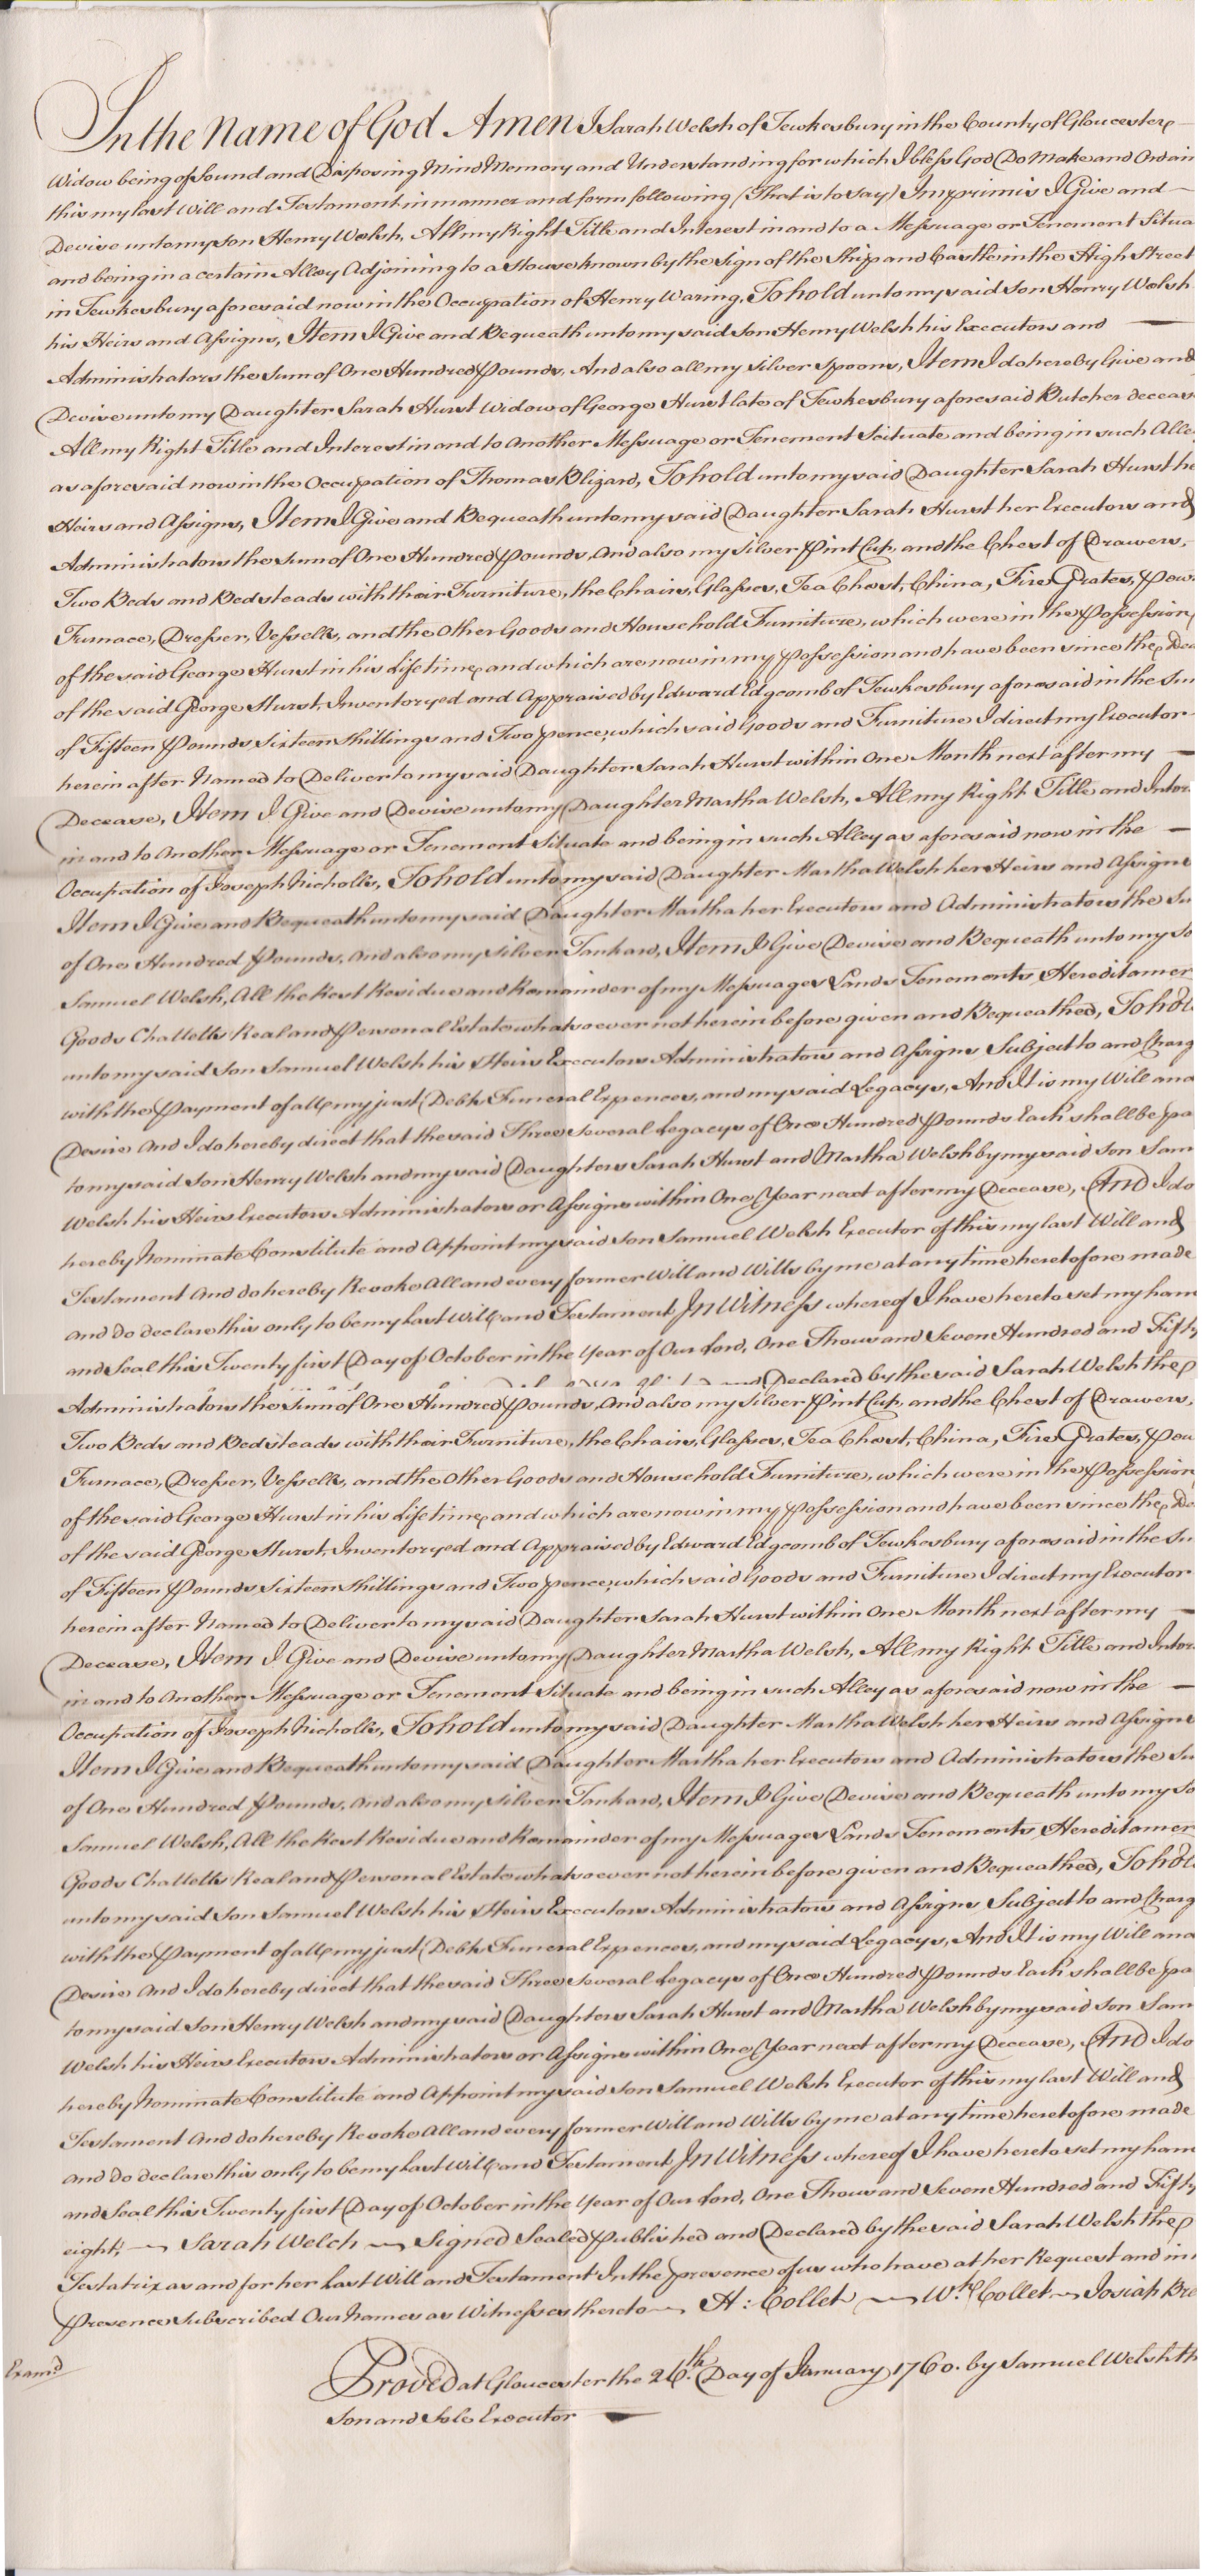 In the Name of God Amen I Sarah Welsh of Tewkesbury in the County of Gloucester
Widow being of Sound and Disposing Mind Memory and Understanding for which I bless God Do Make and Ordain
this my last Will and Testament in manner and form following (That is to say) Imprimis I Give and
Devise unto my son Henry Welsh, All my Right Title and Interest in and to a Messuage or Tenement Situa
and being in a certain Alley Adjoining to a House known by the Sign of the Ship and Castle in the High Street
in Tewkesbury aforesaid now in the Occupation of Henry Waring, To hold unto my said Son Henry Welsh
his Heirs and Assigns, Item I Give and Bequeath unto my said Son Henry Welsh his Executors and
Administrators the Sum of One Hundred Pounds, And also all my Silver Spoons, Item I do hereby Give and
Devise unto my Daughter Sarah Hurst Widow of George Hurst late of Tewkesbury aforesaid Butcher deceas
All my Right Title and Interest in and to Another Messuage or Tenement Scituate and being in such Alle
as aforesaid now in the Occupation of Thomas Blizard, To hold unto my said Daughter Sarah Hurst he
Heirs and Assigns, Item I Give and Bequeath unto my said Daughter Sarah Hurst her Executors and
Administrators the Sum of One Hundred Pounds, And also my Silver Pint Cup, and the Chest of Drawers,
Two Beds and Bedsteads with their Furniture, the Chairs, Glasses, Tea Chest, China, Fire Grates, Pew
Furnace, Dresser, Vessells, and the Other Goods and Household Furniture, which were in the Possession
of the said George Hurst in his life time and which are now in my Possession and have been since the Dea
of the said George Hurst, Inventoryed and Appraised by Edward Edgcomb of Tewkesbury aforesaid in the Su
of Fifteen Pounds Sixteen Shillings and Two pence, which said Goods and Furniture I direct my Executor
herein after Named to Deliver to my said Daughter Sarah Hurst within One Month next after my
Decease, Item I Give and Devise unto my Daughter Martha Welsh, All my Right Title and Inter
in and to Another Messuage or Tenement Situate and being in such Alley as aforesaid now in the
Occupation of Joseph Nicholls, To hold unto my said Daughter Martha Welsh her Heirs and Assigns
Item I Give and Bequeath unto my said Daughter Martha her Executors and Administrators the Su
of One Hundred Pounds, and also my Silver Tankard, Item I Give Devise and Bequeath unto my So
Samuel Welsh, All the Rest Residue and Remainder of my Messuages Lands Tenements Hereditamen
Goods Chattells Real and Personal Estate whatsoever not herein before given and Bequeathed, To hold
unto my said Son Samuel Welsh his Heirs Executors Administrators and Assigns Subject to and Charg
with the Payment of all my just Debts Funeral Expences, and my said Legacys, And It is my Will and
Desire And I do hereby direct that the said Three several Legacys of One Hundred Pounds Each shall be pa
to my said Son Henry Welsh and my said Daughters Sarah Hurst and Martha Welsh by my said Son Sam
Welsh his Heirs Executors Administrators or Assigns within One Year next after my Decease, And I do
hereby Nominate Constitute and Appoint my said Son Samuel Welsh Executor of this my last Will and
Testament And do hereby Revoke All and every former Will and Wills by me at any time heretofore made
and do declare this only to be my Last Will and Testament In Witness whereof I have hereto set my han
and Seal this Twenty first Day of October in the Year of Our Lord, One Thousand Seven Hundred and Fifty
and Declared by the said Sarah Welsh the
Administrators the Sum of One Hundred Pounds, And also my Silver Pint Cup, and the Chest of Drawers,
Two Beds and Bedsteads with their Furniture, the Chairs, Glasses, Tea Chest, China, Fire Grates, Pew
Furnace, Dresser, Vessells, and the Other Goods and Household Furniture, which were in the Possession
of the said George Hurst in his life time and which are now in my Possession and have been since the De
of the said George Hurst, Inventoryed and Appraised by Edward Edgcomb of Tewkesbury aforesaid in the Su
of Fifteen Pounds Sixteen Shillings and Two pence, which said Goods and Furniture I direct my Executor
herein after Named to Deliver to my said Daughter Sarah Hurst within One Month next after my
Decease, Item I Give and Devise unto my Daughter Martha Welsh, All my Right Title and Inter
in and to Another Messuage or Tenement Situate and being in such Alley as aforesaid now in the
Occupation of Joseph Nicholls, To hold unto my said Daughter Martha Welsh her Heirs and Assigns
Item I Give and Bequeath unto my said Daughter Martha her Executors and Administrators the Su
of One Hundred Pounds, and also my Silver Tankard, Item I Give Devise and Bequeath unto my So
Samuel Welsh, All the Rest Residue and Remainder of my Messuages Lands Tenements Hereditamen
Goods Chattells Real and Personal Estate whatsoever not herein before given and Bequeathed, To hold
unto my said Son Samuel Welsh his Heirs Executors Administrators and Assigns Subject to and Charg
with the Payment of all my just Debts Funeral Expences, and my said Legacys, And It is my Will and
Desire And I do hereby direct that the said Three several Legacys of One Hundred Pounds Each shall be pa
to my said Son Henry Welsh and my said Daughters Sarah Hurst and Martha Welsh by my said Son Sam
Welsh his Heirs Executors Administrators or Assigns within One Year next after my Decease, And I do
hereby Nominate Constitute and Appoint my said Son Samuel Welsh Executor of this my last Will and
Testament And do hereby Revoke All and every former Will and Wills by me at any time heretofore made
and do declare this only to be my Last Will and Testament In Witness whereof I have hereto set my han
and Seal this Twenty first Day of October in the Year of Our Lord, One Thousand Seven Hundred and Fifty
eight, Sarah Welch Signed Sealed Published and Declared by the said Sarah Welsh the
Testatrix as and for her Last Will and Testament In the presence of us who have at her Request and in
Presence Subscribed Our Names as Witnesses thereto H: Collet Wm. Collet Josiah Bre
Exam'd
Proved at Gloucester the 26th. Day of January 1760. by Samuel Welsh th
Son and Sole Executor